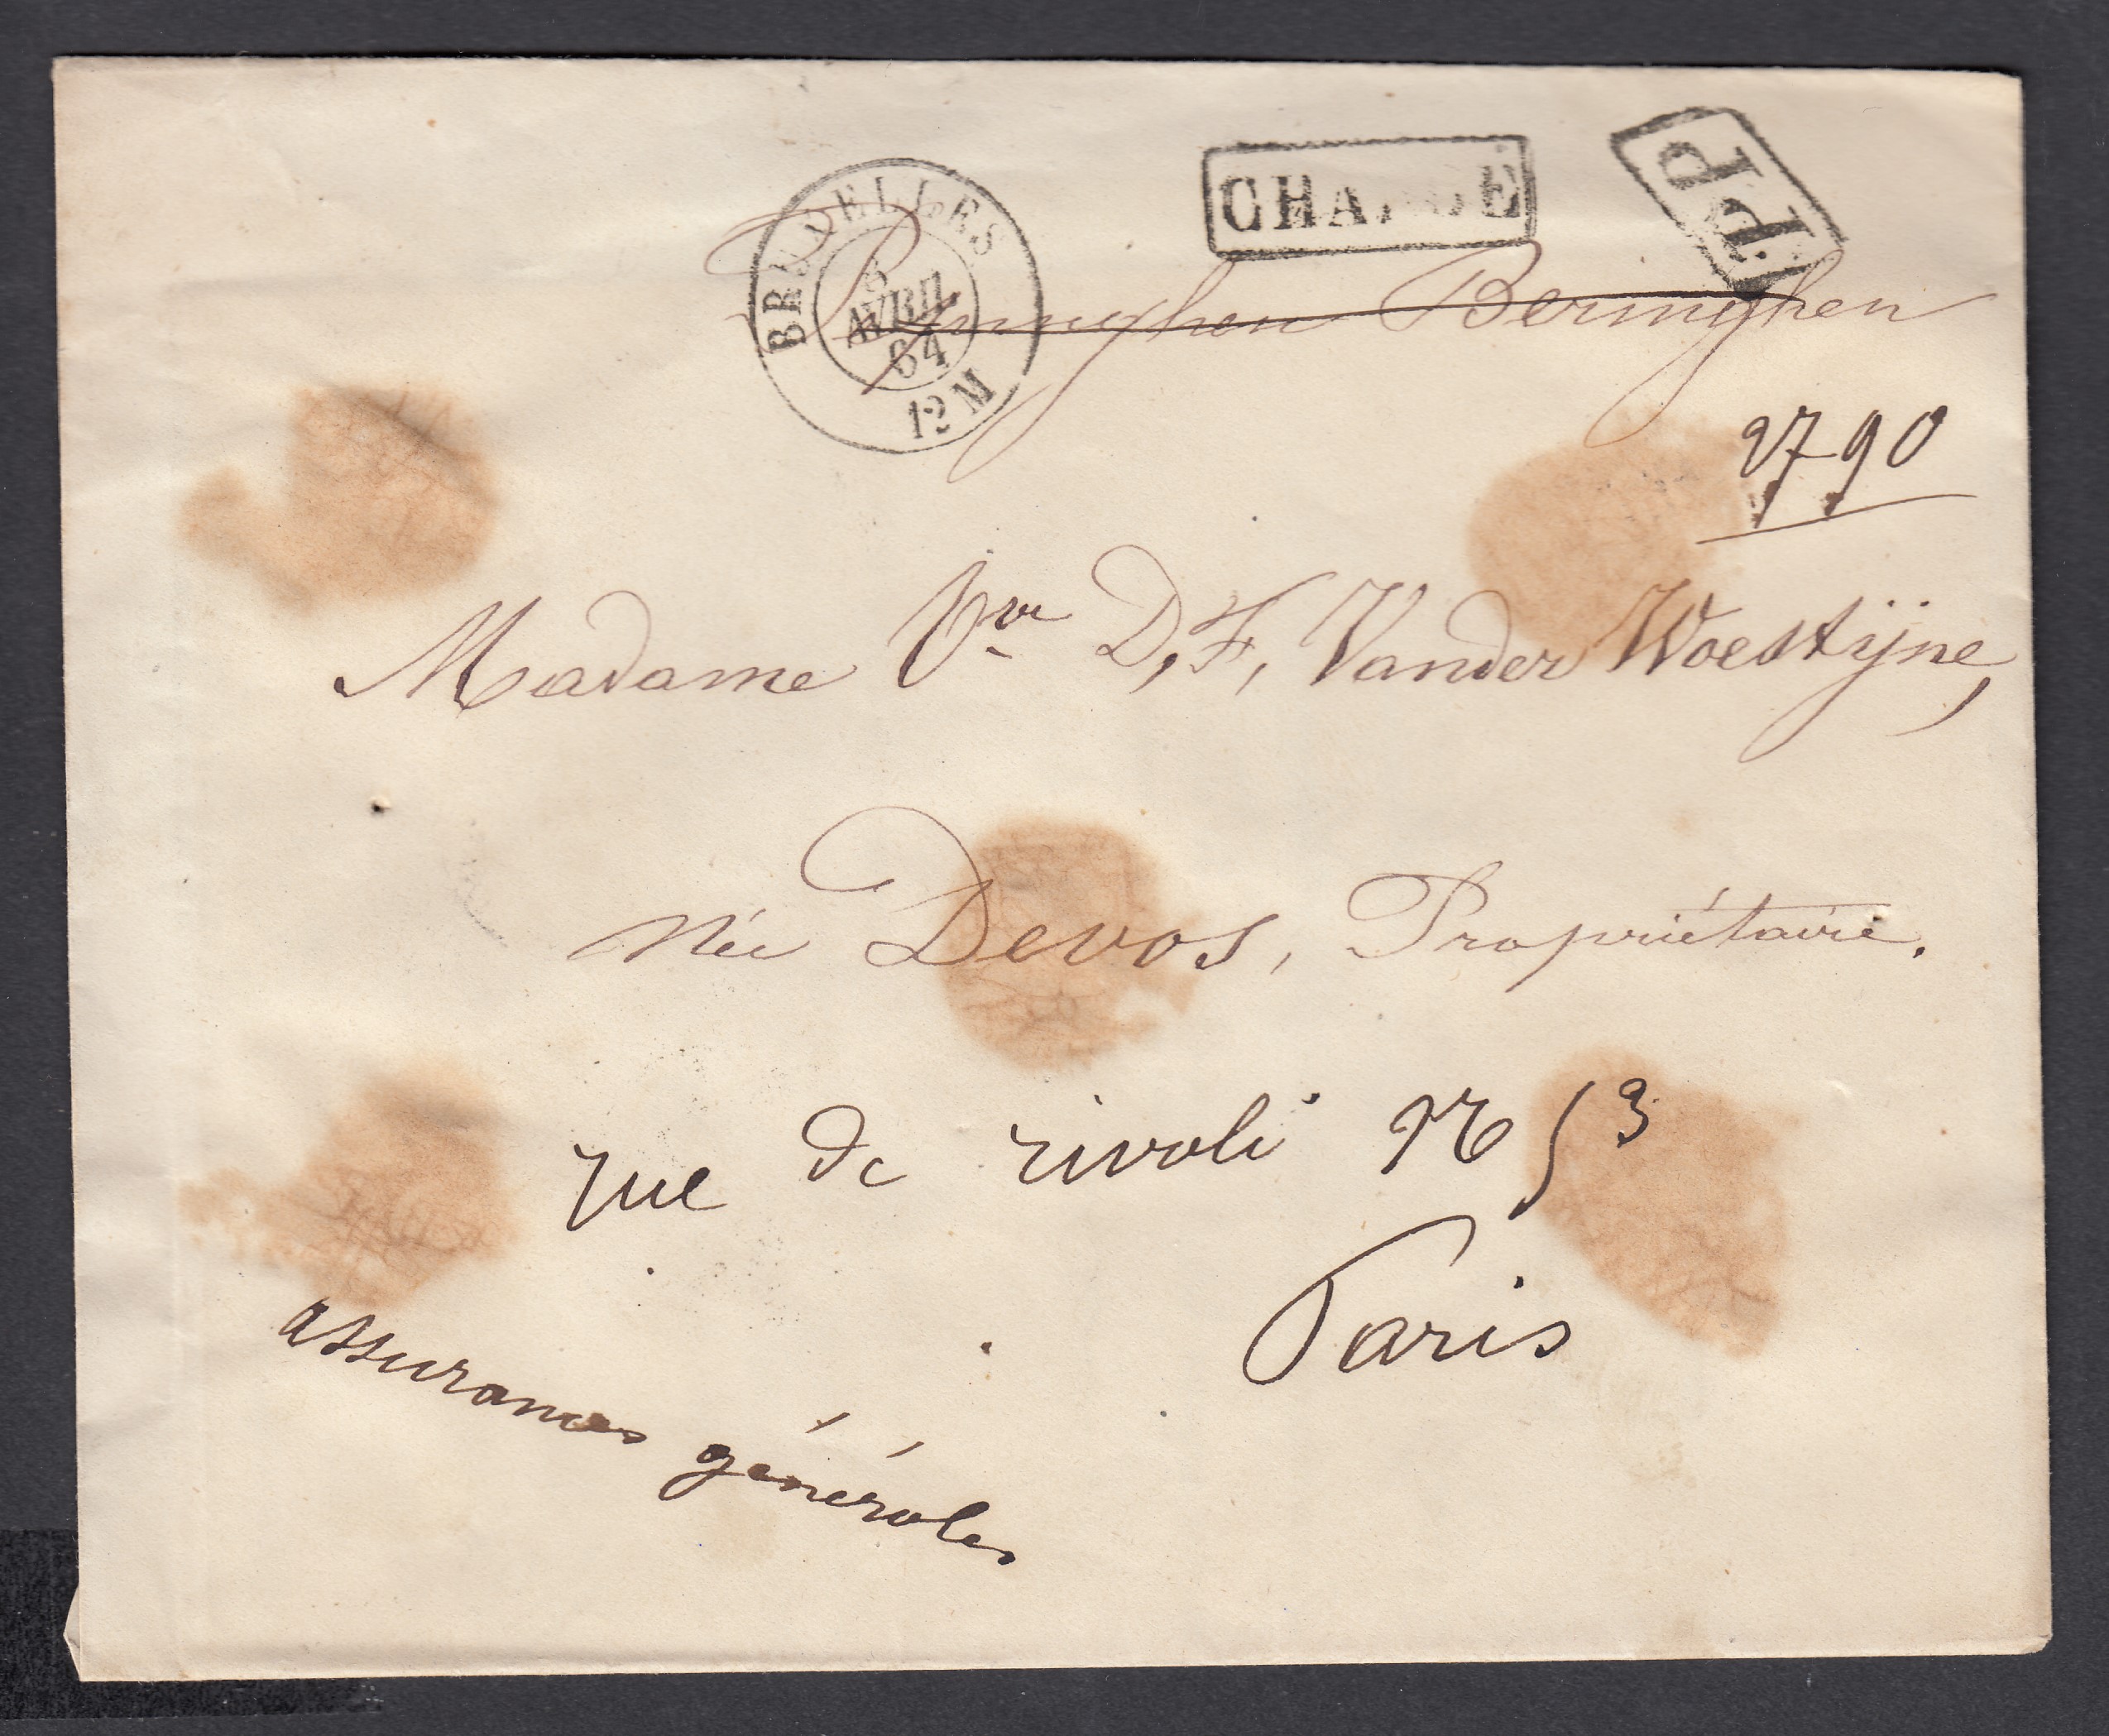 BRUXELLES
8
AVRIL
64
12 M
CHARGÉ
PP
Beringhen
2790
Madame Vve D, F, Vander Woestijne,
Née Devos, Propriétaire.
rue de rivoli No 53
Paris
assurances générales